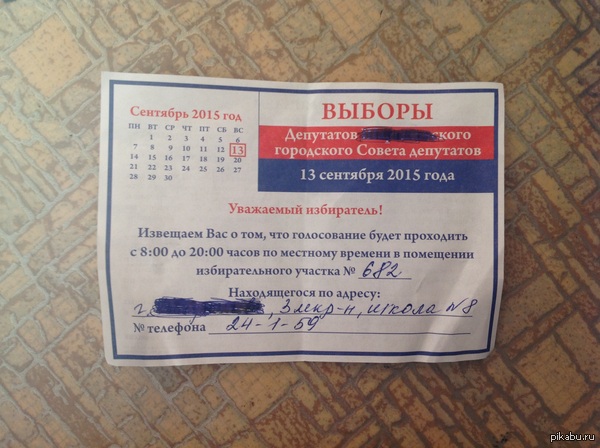 Сентябрь 2015 год
ПН ВТ СР ЧТ ПТ СБ ВС
1 2 3 4 5 6
7 8 9 10 11 12 13
14 15 16 17 18 19 20
21 22 23 24 25 26 27
28 29 30
ВЫБОРЫ
Депутатов ского
городского Совета депутатов
13 сентября 2015 года
Уважаемый избиратель!
Извещаем Вас о том, что голосование будет проходить
с 8:00 до 20:00 часов по местному времени в помещении
избирательного участка № 682
Находящегося по адресу:
г. , 3 мкр-н, школа №8
№ телефона 24-1-59
pikabu.ru